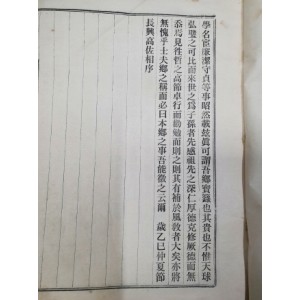 學名宦廉潔守貞等事昭然載玆眞可謂吾鄕寶鑑也其貴也不惟天球
弘璧之可比而來世之爲子孫者先感祖先之深仁厚德克修厥德而無
忝焉見性哲之高節卓行而勸勉而則之則其有補於風敎者大矣亦將
無愧乎士夫鄕之稱而必曰本鄕之事吾能徵之云爾 歲乙巳仲夏節
長興高佐相序